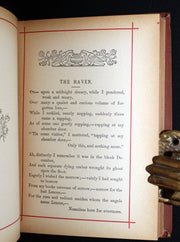 THE RAVEN.
Once upon a midnight dreary, while I pondered,
weak and weary,
Over many a quaint and curious volume of for-
gotten lore,—
While I nodded, nearly napping, suddenly there
came a tapping,
As of some one gently rapping, rapping at my
chamber door.
"'Tis some visitor," I muttered, "tapping at my
chamber door;
Only this, and nothing more."
Ah, distinctly I remember it was in the bleak De-
cember,
And each separate dying ember wrought its ghost
upon the floor.
Eagerly I wished the morrow; vainly I had sought
to borrow
From my books surcease of sorrow, sorrow for the
lost Lenore,—
For the rare and radiant maiden whom the angels
name Lenore,—
Nameless here for evermore.